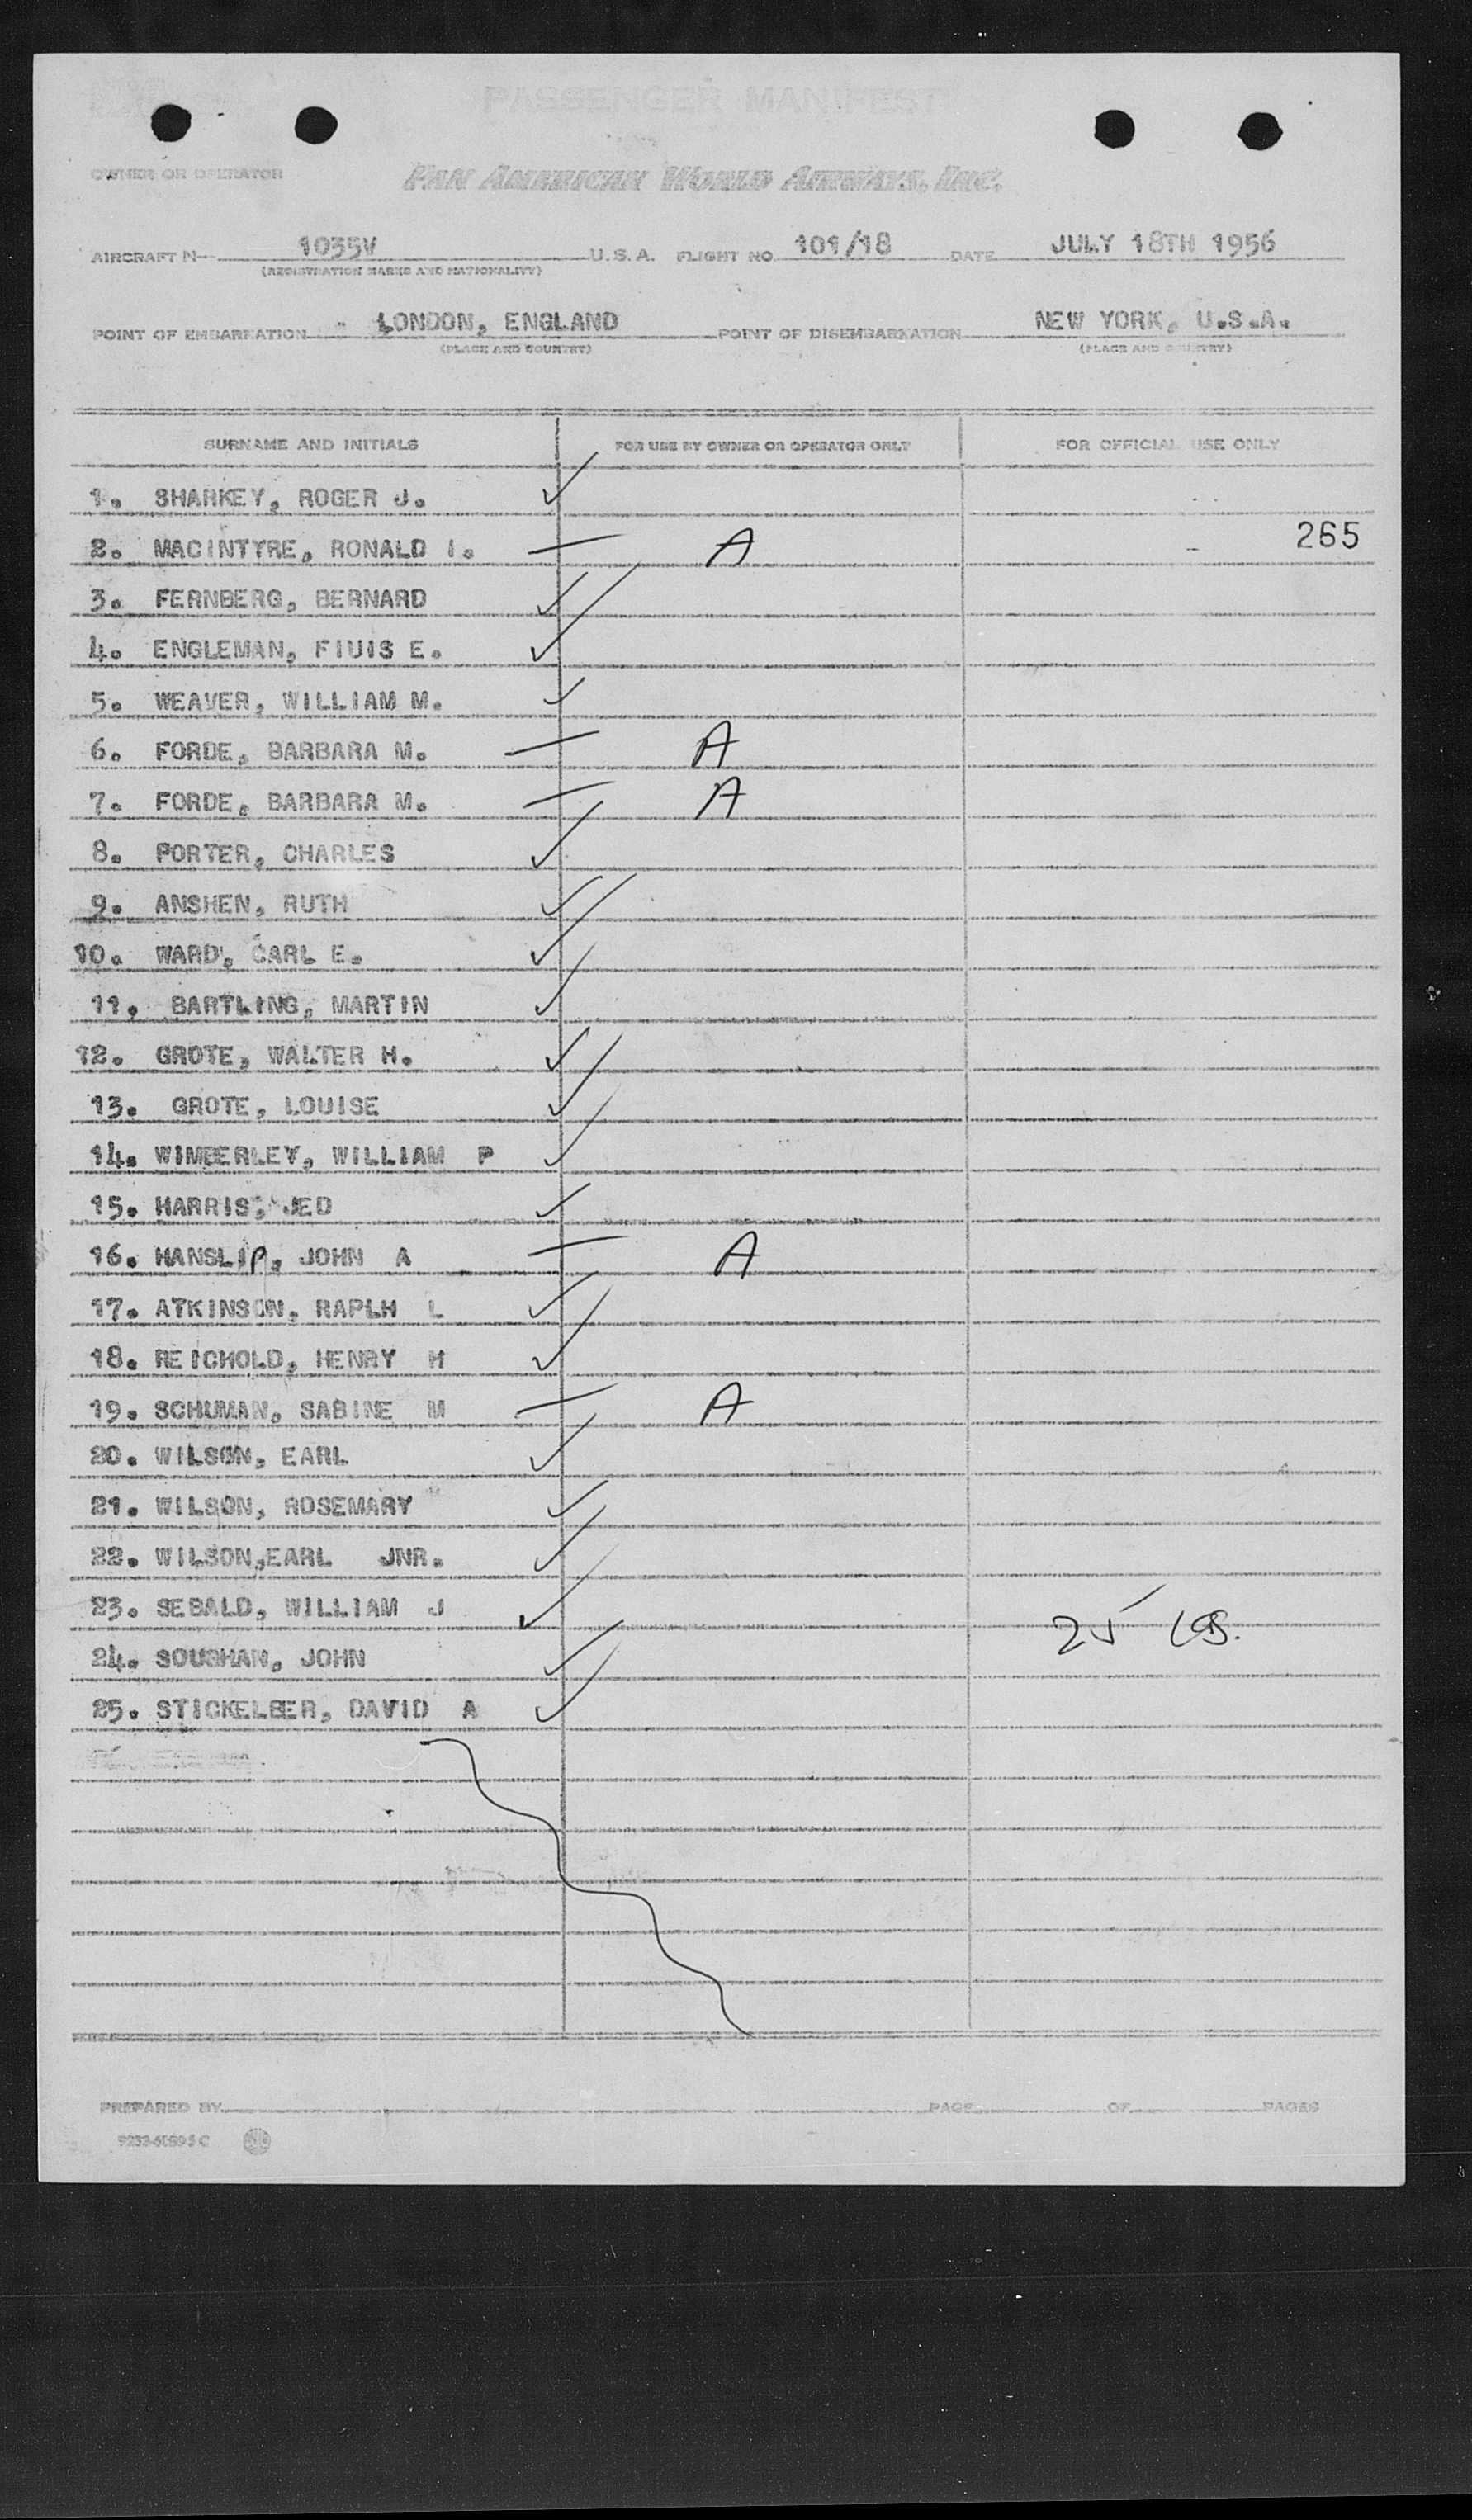 PASSENGER MANIFEST
OWNER OR OPERATOR PAN AMERICAN WORLD AIRWAYS, INC.
AIRCRAFT N— 1035V U.S.A. FLIGHT NO. 101/18 DATE JULY 18TH 1956
(REGISTRATION MARKS AND NATIONALITY)
POINT OF EMBARKATION LONDON, ENGLAND POINT OF DISEMBARKATION NEW YORK, U.S.A.
(PLACE AND COUNTRY) (PLACE AND COUNTRY)
SURNAME AND INITIALS FOR USE BY OWNER OR OPERATOR ONLY FOR OFFICIAL USE ONLY
1. SHARKEY, ROGER J. ✓
2. MACINTYRE, RONALD I. — A 265
3. FERNBERG, BERNARD ✓
4. ENGLEMAN, FIUIS E. ✓
5. WEAVER, WILLIAM M. ✓
6. FORDE, BARBARA M. — A
7. FORDE, BARBARA M. — A
8. PORTER, CHARLES ✓
9. ANSHEN, RUTH ✓
10. WARD, CARL E. ✓
11. BARTLING, MARTIN ✓
12. GROTE, WALTER H. ✓
13. GROTE, LOUISE ✓
14. WIMBERLEY, WILLIAM P ✓
15. HARRIS, JED ✓
16. HANSLIP, JOHN A — A
17. ATKINSON, RAPLH L ✓
18. REICHOLD, HENRY H ✓
19. SCHUMAN, SABINE M — A
20. WILSON, EARL ✓
21. WILSON, ROSEMARY ✓
22. WILSON,EARL JNR. ✓
23. SEBALD, WILLIAM J ✓
25
24. SOUSHAN, JOHN ✓
25. STICKELBER, DAVID A ✓
PREPARED BY PAGE OF PAGES